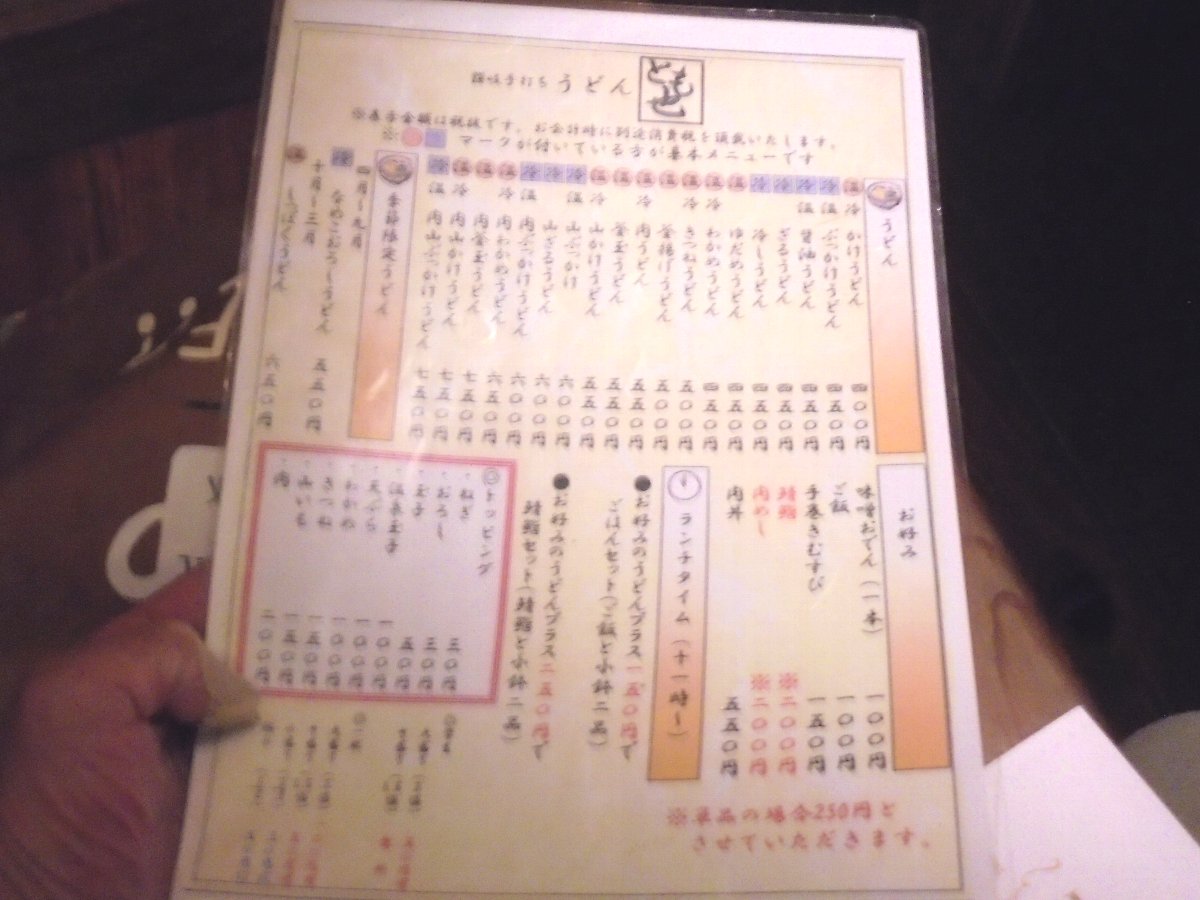 讃岐手打ち うどん
ともせ
※表示金額は税抜です。お会計時に別途消費税を頂戴いたします。
※ マークが付いている方が基本メニューです
うどん
温 冷 かけうどん 四〇〇円
冷 温 ぶっかけうどん 四五〇円
冷 温 醤油うどん 四五〇円
冷 ざるうどん 四五〇円
冷 冷しうどん 四五〇円
温 ゆだめうどん 四五〇円
温 冷 わかめうどん 四五〇円
温 冷 きつねうどん 五〇〇円
温 釜揚げうどん 五〇〇円
温 肉うどん 五五〇円
温 釜玉うどん 五五〇円
温 冷 山かけうどん 五五〇円
冷 温 山ぶっかけ 六〇〇円
冷 山ざるうどん 六〇〇円
冷 温 肉ぶっかけうどん 六〇〇円
温 冷 肉わかめうどん 六五〇円
温 肉釜玉うどん 七〇〇円
温 冷 肉山かけうどん 七五〇円
冷 温 肉山ぶっかけうどん 七五〇円
季節限定うどん
四月〜九月
冷 なめこおろしうどん 五五〇円
十月〜三月
温 しっぽくうどん 六五〇円
お好み
味噌おでん(一本) 一〇〇円
ご飯 一〇〇円
手巻きむすび 一五〇円
鯖鮨 ※二〇〇円
肉めし ※二〇〇円
肉丼 五五〇円
※単品の場合250円と
させていただきます。
ランチタイム(十一時〜)
●お好みのうどんプラス一五〇円で
ごはんセット(ご飯と小鉢二品)
●お好みのうどんプラス二五〇円で
鯖鮨セット(鯖鮨と小鉢二品)
◎トッピング
・ねぎ 三〇円
・おろし 三〇円
・玉子 五〇円
・温泉玉子 一〇〇円
・天ぷら 一〇〇円
・わかめ 一〇〇円
・きつね 一五〇円
・山いも 一五〇円
・肉 二〇〇円